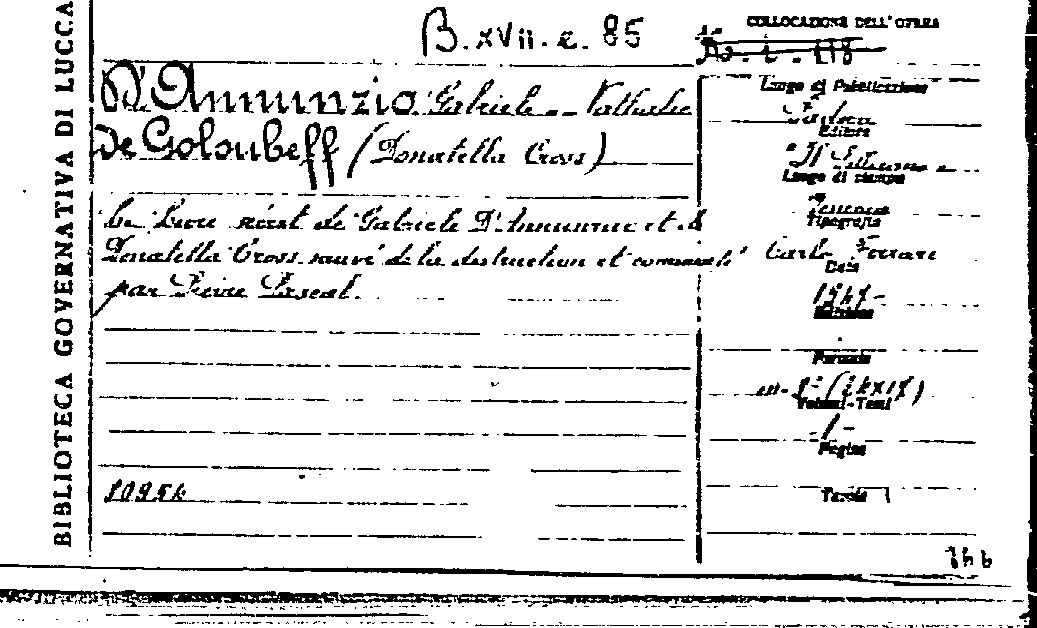 BIBLIOTECA GOVERNATIVA DI LUCCA
B. XVII. e. 85
COLLOCAZIONE DELL'OPERA
D'Annunzio Gabriele - Nathalie
de Goloubeff (Donatella Cross)
Le Livre secret de Gabriele D'Annunzio et de
Donatella Cross sauvé de la destruction et commenté
par Pierre Pascal.
10956
Luogo di Pubblicazione
Padova
Editore
"Il
Luogo di stampa
Tipografia
Carlo Ferrari
Data
1947-
Edizione
Formato
in-8°
Volumi-Tomi
-1-
Pagine
Tavole